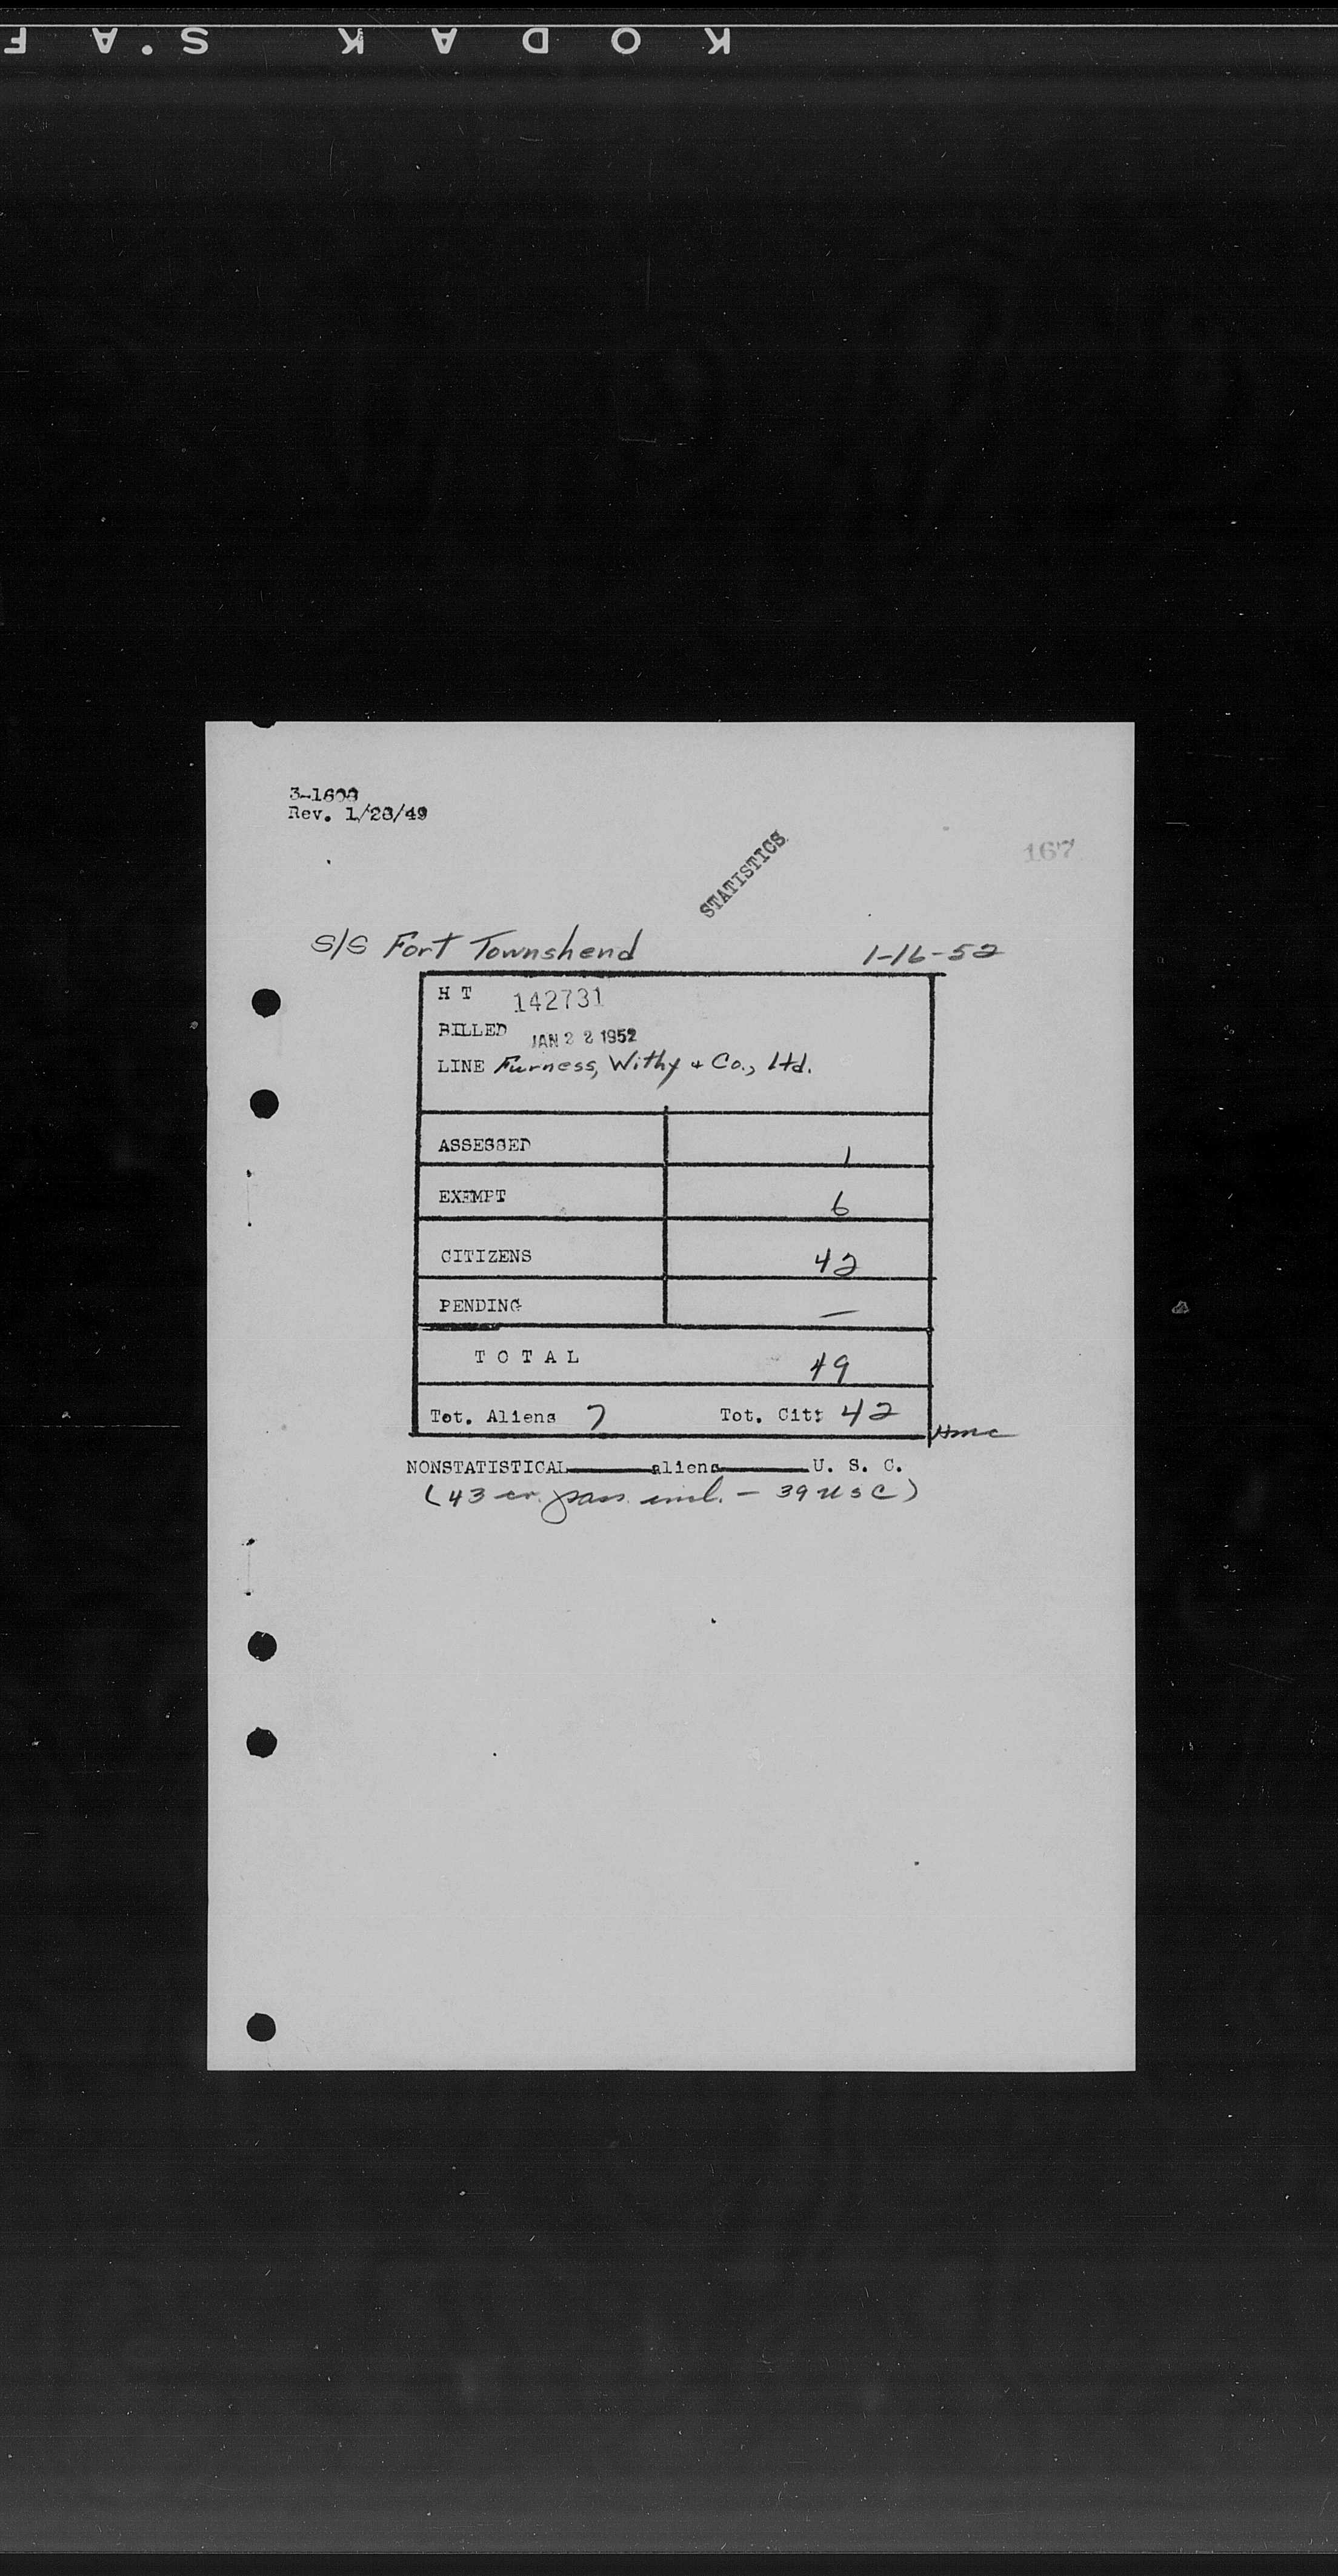 KODAK S.A F
3-1609
Rev. 1/28/49
167
STATISTICS
S/S Fort Townshend 1-16-52
H T 142731
BILLED JAN 22 1952
LINE Furness, Withy & Co., Ltd.
ASSESSED 1
EXEMPT 6
CITIZENS 42
PENDING —
T O T A L 49
Tot. Aliens 7 Tot. Cit: 42
NONSTATISTICAL aliens U. S. C.
(43 cr. pass. incl. - 39 USC)